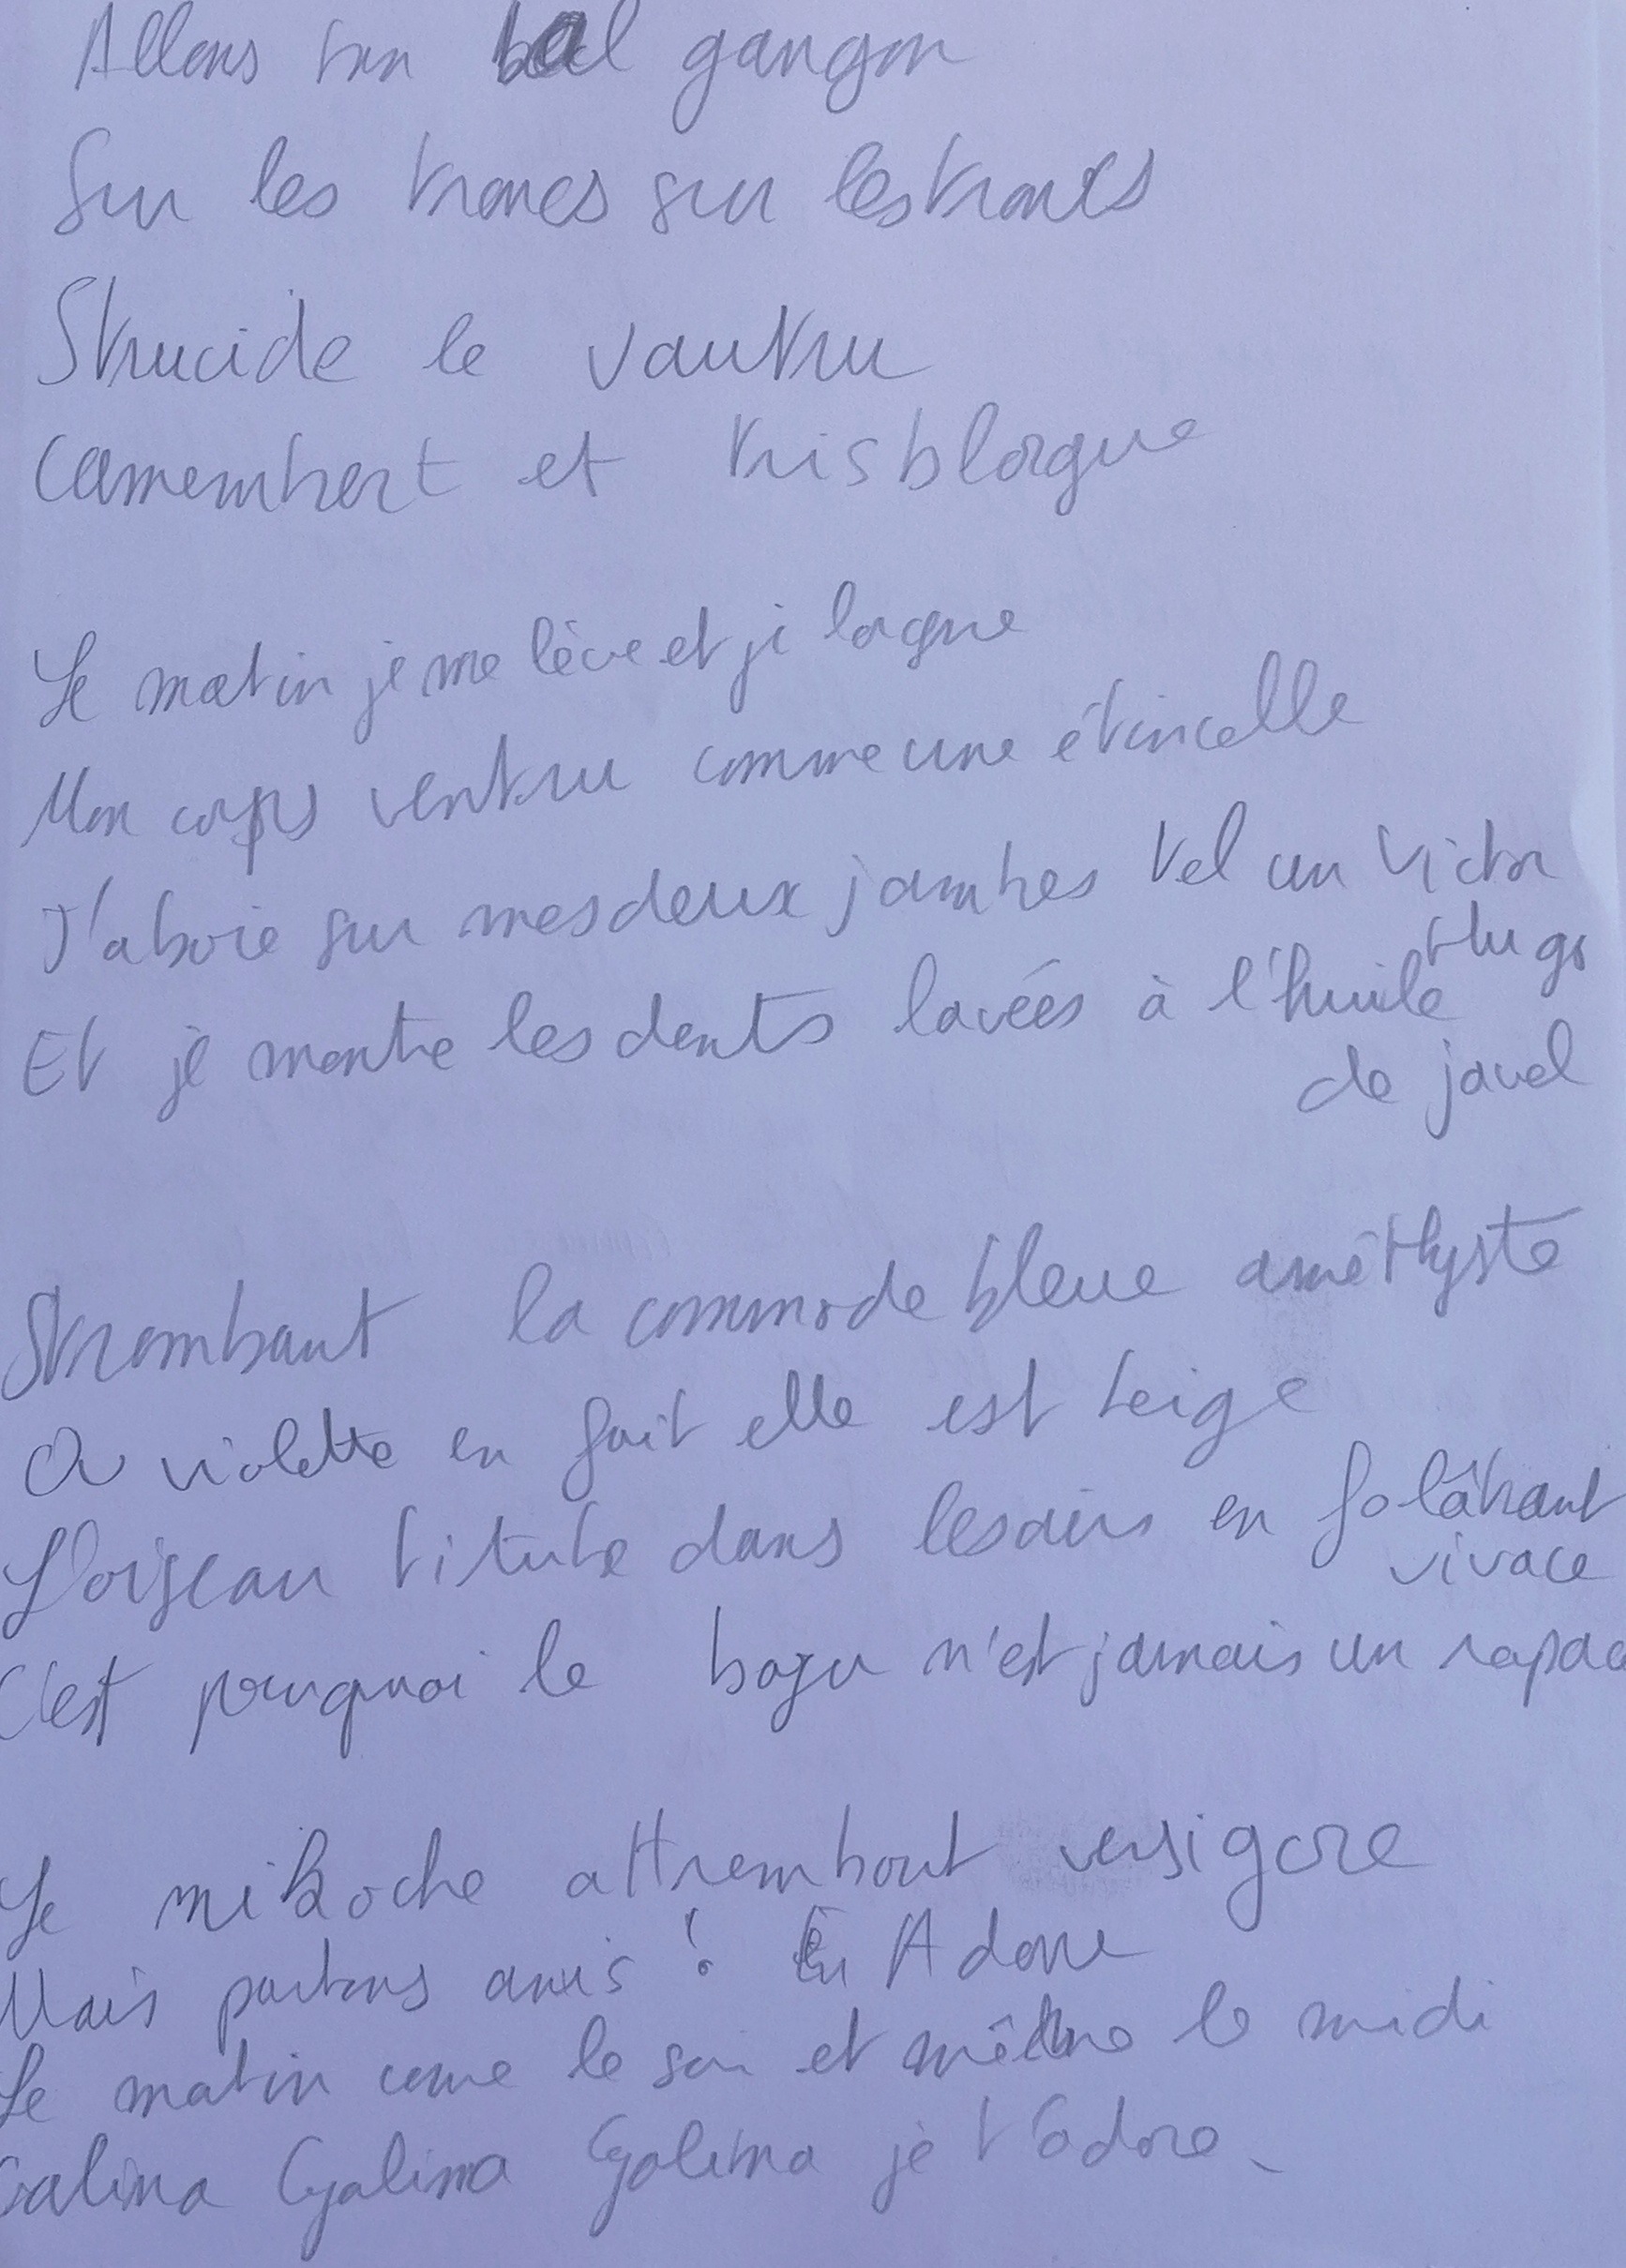 Allons bon bal gangon
Sur les troncs sur les troncs
Strucide le vautru
Camembert et trisblorgue
Le matin je me lève et je lorgne
Mon corps ventru comme une étincelle
J'aboie sur mes deux jambes tel un Victor
Hugo
Et je montre les dents lavées à l'huile
de javel
Strombant la commode bleue améthyste
Ou violette en fait elle est beige
L'oiseau titube dans les airs en folâtrant
vivace
C'est pourquoi le bogu n'est jamais un rapac
Le mikoche attrembout versigore
Mais partons amis ! En Adorre
Le matin come le soir et même le midi
Galina Galina Galina je t'adore